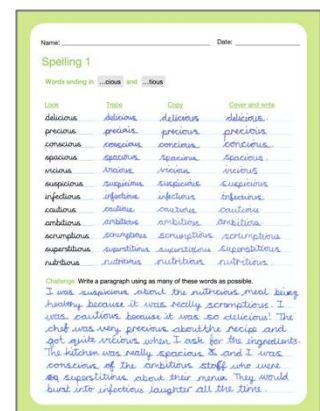 Name: Date:
Spelling 1
Words ending in ...cious and ...tious
Look Trace Copy Cover and write
delicious delicious delicious delicious.
precious precious precious precious
conscious conscious concious concious.
spacious spacious spacious spacious.
vicious vicious vicious vicious
suspicious suspicious suspicious suspicious
infectious infectious infectious infectious.
cautious cautious cautious cautiou
ambitious ambitious ambitious ambitios.
scrumptious scrumptious scrumptious scrumptious
superstitious superstitious superstitious superstitious
nutritious nutritious nutrition nutritious
Challenge Write a paragraph using as many of these words as possible.
I was suspicious about the nutricious meal being
healthy because it was really scromptious. I
was cautious because it was so delicious! The
chef was very precious about the recipe and
got quite vicious when I ask for the ingredients.
The kitchen was really spacious & and I was
conscious of the ambitious staff who were
superstitious about their menus. They would
burst into infectious laughter all the time.